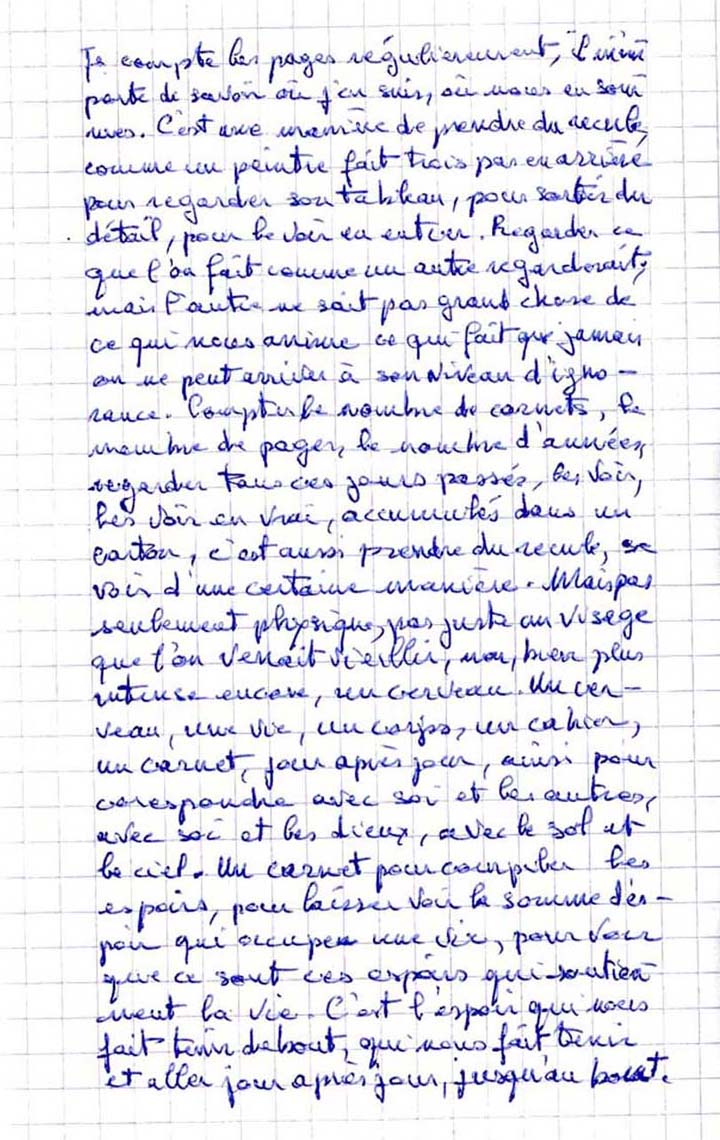 Je compte les pages régulièrement, il m'im
porte de savoir où j'en suis, où nous en som
mes. C'est une manière de prendre du recule,
comme un peintre fait trois pas en arrière
pour regarder son tableau, pour sortir du
détail, pour le voir en entier. Regarder ce
que l'on fait comme un autre regarderait,
mais l'autre ne sait pas grand chose de
ce qui nous anime ce qui fait que jamais
on ne peut arriver à son niveau d'igno-
rance. Compter le nombre de carnets, le
nombre de pages, le nombre d'années,
regarder tous ces jours passés, les voir,
les voir en vrai, accumulés dans un
carton, c'est aussi prendre du recule, se
voir d'une certaine manière. Mais pas
seulement physique, pas juste un visage
que l'on verrait vieillir, non, bien plus
intense encore, un cerveau. Un cer-
veau, une vie, un corps, un cahier,
un carnet, jour après jour, ainsi pour
correspondre avec soi et les autres,
avec soi et les dieux, avec le sol et
le ciel. Un carnet pour compiler les
espoirs, pour laisser voir la somme d'es-
poir qui occupe une vie, pour voir
que ce sont ces espoirs qui soutien
nent la vie. C'est l'espoir qui nous
fait tenir debout, qui nous fait tenir
et aller jour après jour, jusqu'au bout.